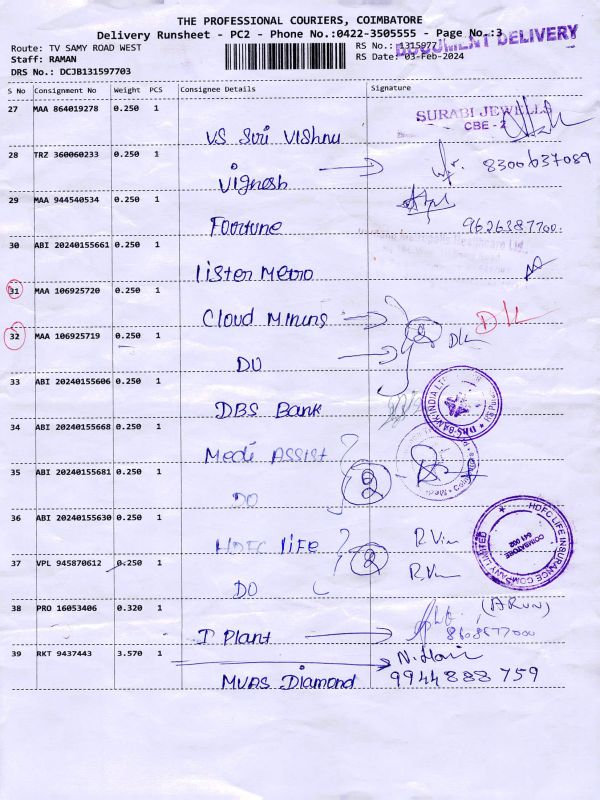 THE PROFESSIONAL COURIERS, COIMBATORE
Delivery Runsheet - PC2 - Phone No.:0422-3505555 - Page No.:3
DOCUMENT DELIVERY
Route: TV SAMY ROAD WEST
RS No.: 1315977
Staff: RAMAN
RS Date: 03-Feb-2024
DRS No.: DCJB131597703
S No Consignment No Weight PCS Consignee Details Signature
27 MAA 864019278 0.250 1
VS Sri Vishnu
SURABI JEWELLS
CBE - 2
28 TRZ 360060233 0.250 1
Vignesh
8300637089
29 MAA 944540534 0.250 1
Foortune
9626387700.
30 ABI 20240155661 0.250 1
Lister Metro
Healthcare Ltd.
31 MAA 106925720 0.250 1
Cloud Mining
32 MAA 106925719 0.250 1
DO
33 ABI 20240155606 0.250 1
DBS Bank
DBS BANK INDIA LTD
34 ABI 20240155668 0.250 1
Medi Assist
35 ABI 20240155681 0.250 1
DO
36 ABI 20240155630 0.250 1
HDFC Life
HDFC LIFE INSURANCE COMPANY LIMITED
COIMBATORE
641 002
37 VPL 945870612 0.250 1
DO
38 PRO 16053406 0.320 1
I Plant
(ARUN)
39 RKT 9437443 3.570 1
MVDS Diamond
N. Hari
9944888759